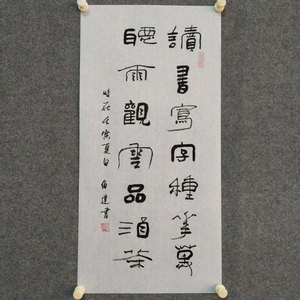 讀書寫字種華
聽雨觀雲品酒茶
時在壬寅夏日 書